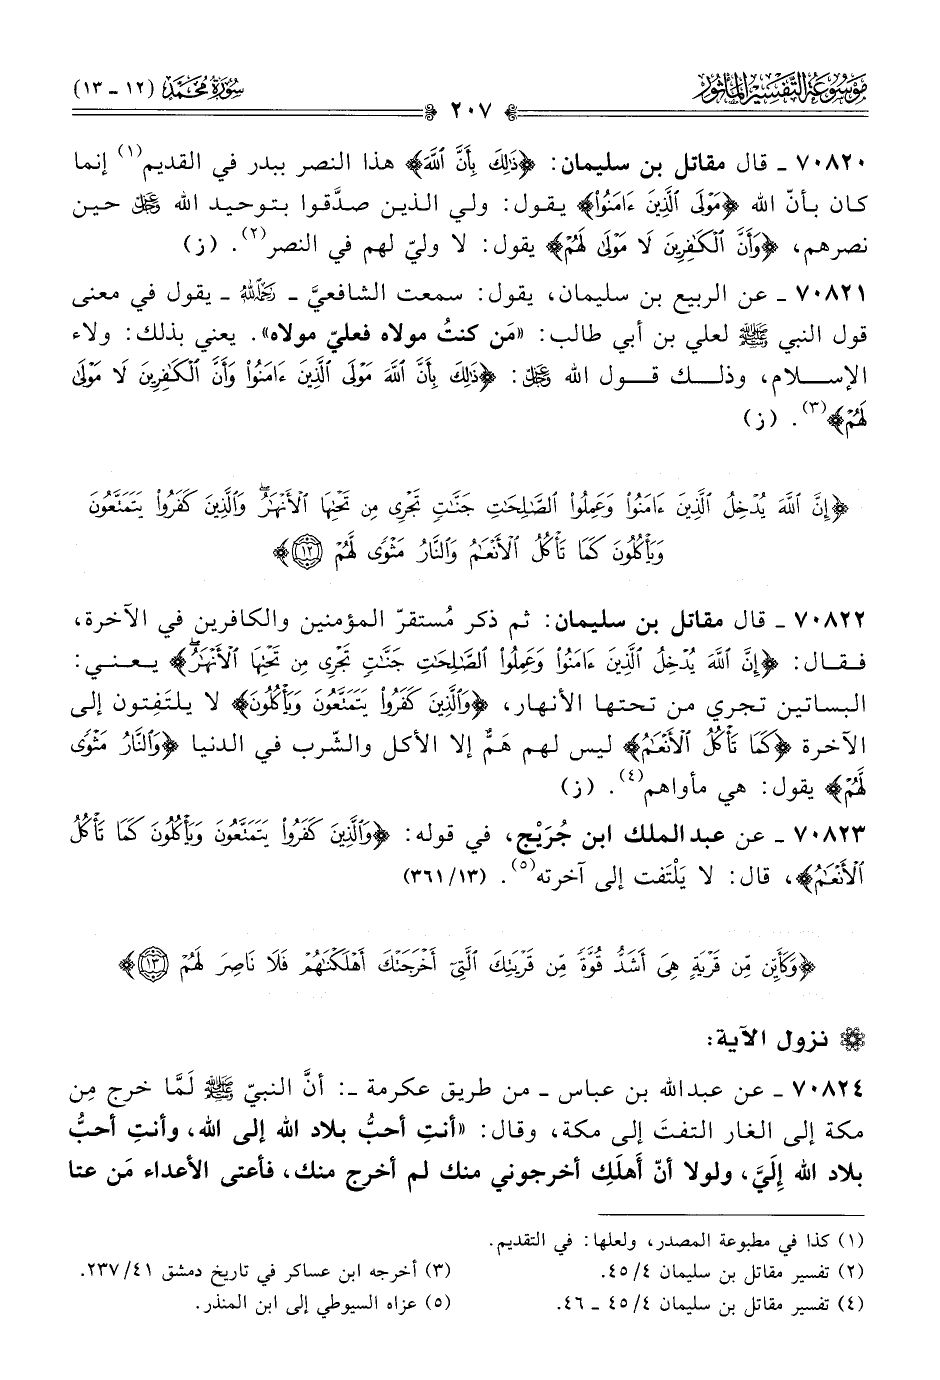 موسوعة التفسير المأثور
سورة محمد (١٢ - ١٣)
٢٠٧
٧٠٨٢٠ - قال مقاتل بن سليمان: ﴿ذَٰلِكَ بِأَنَّ ٱللَّهَ﴾ هذا النصر ببدر في القديم(١) إنما
كان بأنّ الله ﴿مَوْلَى ٱلَّذِينَ ءَامَنُوا۟﴾ يقول: ولي الذين صدَّقوا بتوحيد الله ﷿ حين
نصرهم، ﴿وَأَنَّ ٱلْكَٰفِرِينَ لَا مَوْلَىٰ لَهُمْ﴾ يقول: لا وليّ لهم في النصر(٢). (ز)
٧٠٨٢١ - عن الربيع بن سليمان، يقول: سمعت الشافعيَّ - رحمه الله - يقول في معنى
قول النبي ﷺ لعلي بن أبي طالب: «مَن كنتُ مولاه فعليّ مولاه». يعني بذلك: ولاء
الإسلام، وذلك قول الله ﷿: ﴿ذَٰلِكَ بِأَنَّ ٱللَّهَ مَوْلَى ٱلَّذِينَ ءَامَنُوا۟ وَأَنَّ ٱلْكَٰفِرِينَ لَا مَوْلَىٰ
لَهُمْ﴾(٣). (ز)
﴿إِنَّ ٱللَّهَ يُدْخِلُ ٱلَّذِينَ ءَامَنُوا۟ وَعَمِلُوا۟ ٱلصَّٰلِحَٰتِ جَنَّٰتٍ تَجْرِى مِن تَحْتِهَا ٱلْأَنْهَٰرُ ۖ وَٱلَّذِينَ كَفَرُوا۟ يَتَمَتَّعُونَ
وَيَأْكُلُونَ كَمَا تَأْكُلُ ٱلْأَنْعَٰمُ وَٱلنَّارُ مَثْوًى لَّهُمْ ١٢﴾
٧٠٨٢٢ - قال مقاتل بن سليمان: ثم ذكر مُستقرّ المؤمنين والكافرين في الآخرة،
فقال: ﴿إِنَّ ٱللَّهَ يُدْخِلُ ٱلَّذِينَ ءَامَنُوا۟ وَعَمِلُوا۟ ٱلصَّٰلِحَٰتِ جَنَّٰتٍ تَجْرِى مِن تَحْتِهَا ٱلْأَنْهَٰرُ ۖ﴾ يعني:
البساتين تجري من تحتها الأنهار، ﴿وَٱلَّذِينَ كَفَرُوا۟ يَتَمَتَّعُونَ وَيَأْكُلُونَ﴾ لا يلتَفِتون إلى
الآخرة ﴿كَمَا تَأْكُلُ ٱلْأَنْعَٰمُ﴾ ليس لهم هَمٌّ إلا الأكل والشّرب في الدنيا ﴿وَٱلنَّارُ مَثْوًى
لَّهُمْ﴾ يقول: هي مأواهم(٤). (ز)
٧٠٨٢٣ - عن عبدالملك ابن جُرَيْج، في قوله: ﴿وَٱلَّذِينَ كَفَرُوا۟ يَتَمَتَّعُونَ وَيَأْكُلُونَ كَمَا تَأْكُلُ
ٱلْأَنْعَٰمُ﴾، قال: لا يَلْتَفت إلى آخرته(٥). (٣٦١/١٣)
﴿وَكَأَيِّن مِّن قَرْيَةٍ هِىَ أَشَدُّ قُوَّةً مِّن قَرْيَتِكَ ٱلَّتِىٓ أَخْرَجَتْكَ أَهْلَكْنَٰهُمْ فَلَا نَاصِرَ لَهُمْ ١٣﴾
نزول الآية:
٧٠٨٢٤ - عن عبدالله بن عباس - من طريق عكرمة -: أنَّ النبيّ ﷺ لَمَّا خرج مِن
مكة إلى الغار التفتَ إلى مكة، وقال: «أنتِ أحبُّ بلاد الله إلى الله، وأنتِ أحبُّ
بلاد الله إِلَيَّ، ولولا أنّ أَهلَكِ أخرجوني منك لم أخرج منك، فأعتى الأعداء مَن عتا
(١) كذا في مطبوعة المصدر، ولعلها: في التقديم.
(٢) تفسير مقاتل بن سليمان ٤/ ٤٥.
(٣) أخرجه ابن عساكر في تاريخ دمشق ٤١/ ٢٣٧.
(٤) تفسير مقاتل بن سليمان ٤/ ٤٥ - ٤٦.
(٥) عزاه السيوطي إلى ابن المنذر.